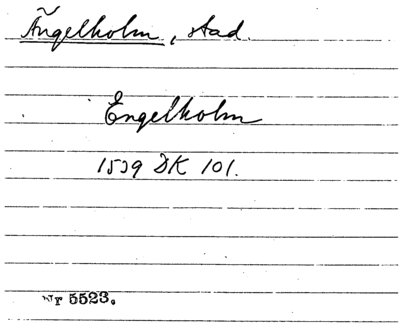 Ängelholm, stad.
Engelholm
1539 DK 101.
Nr 5523.